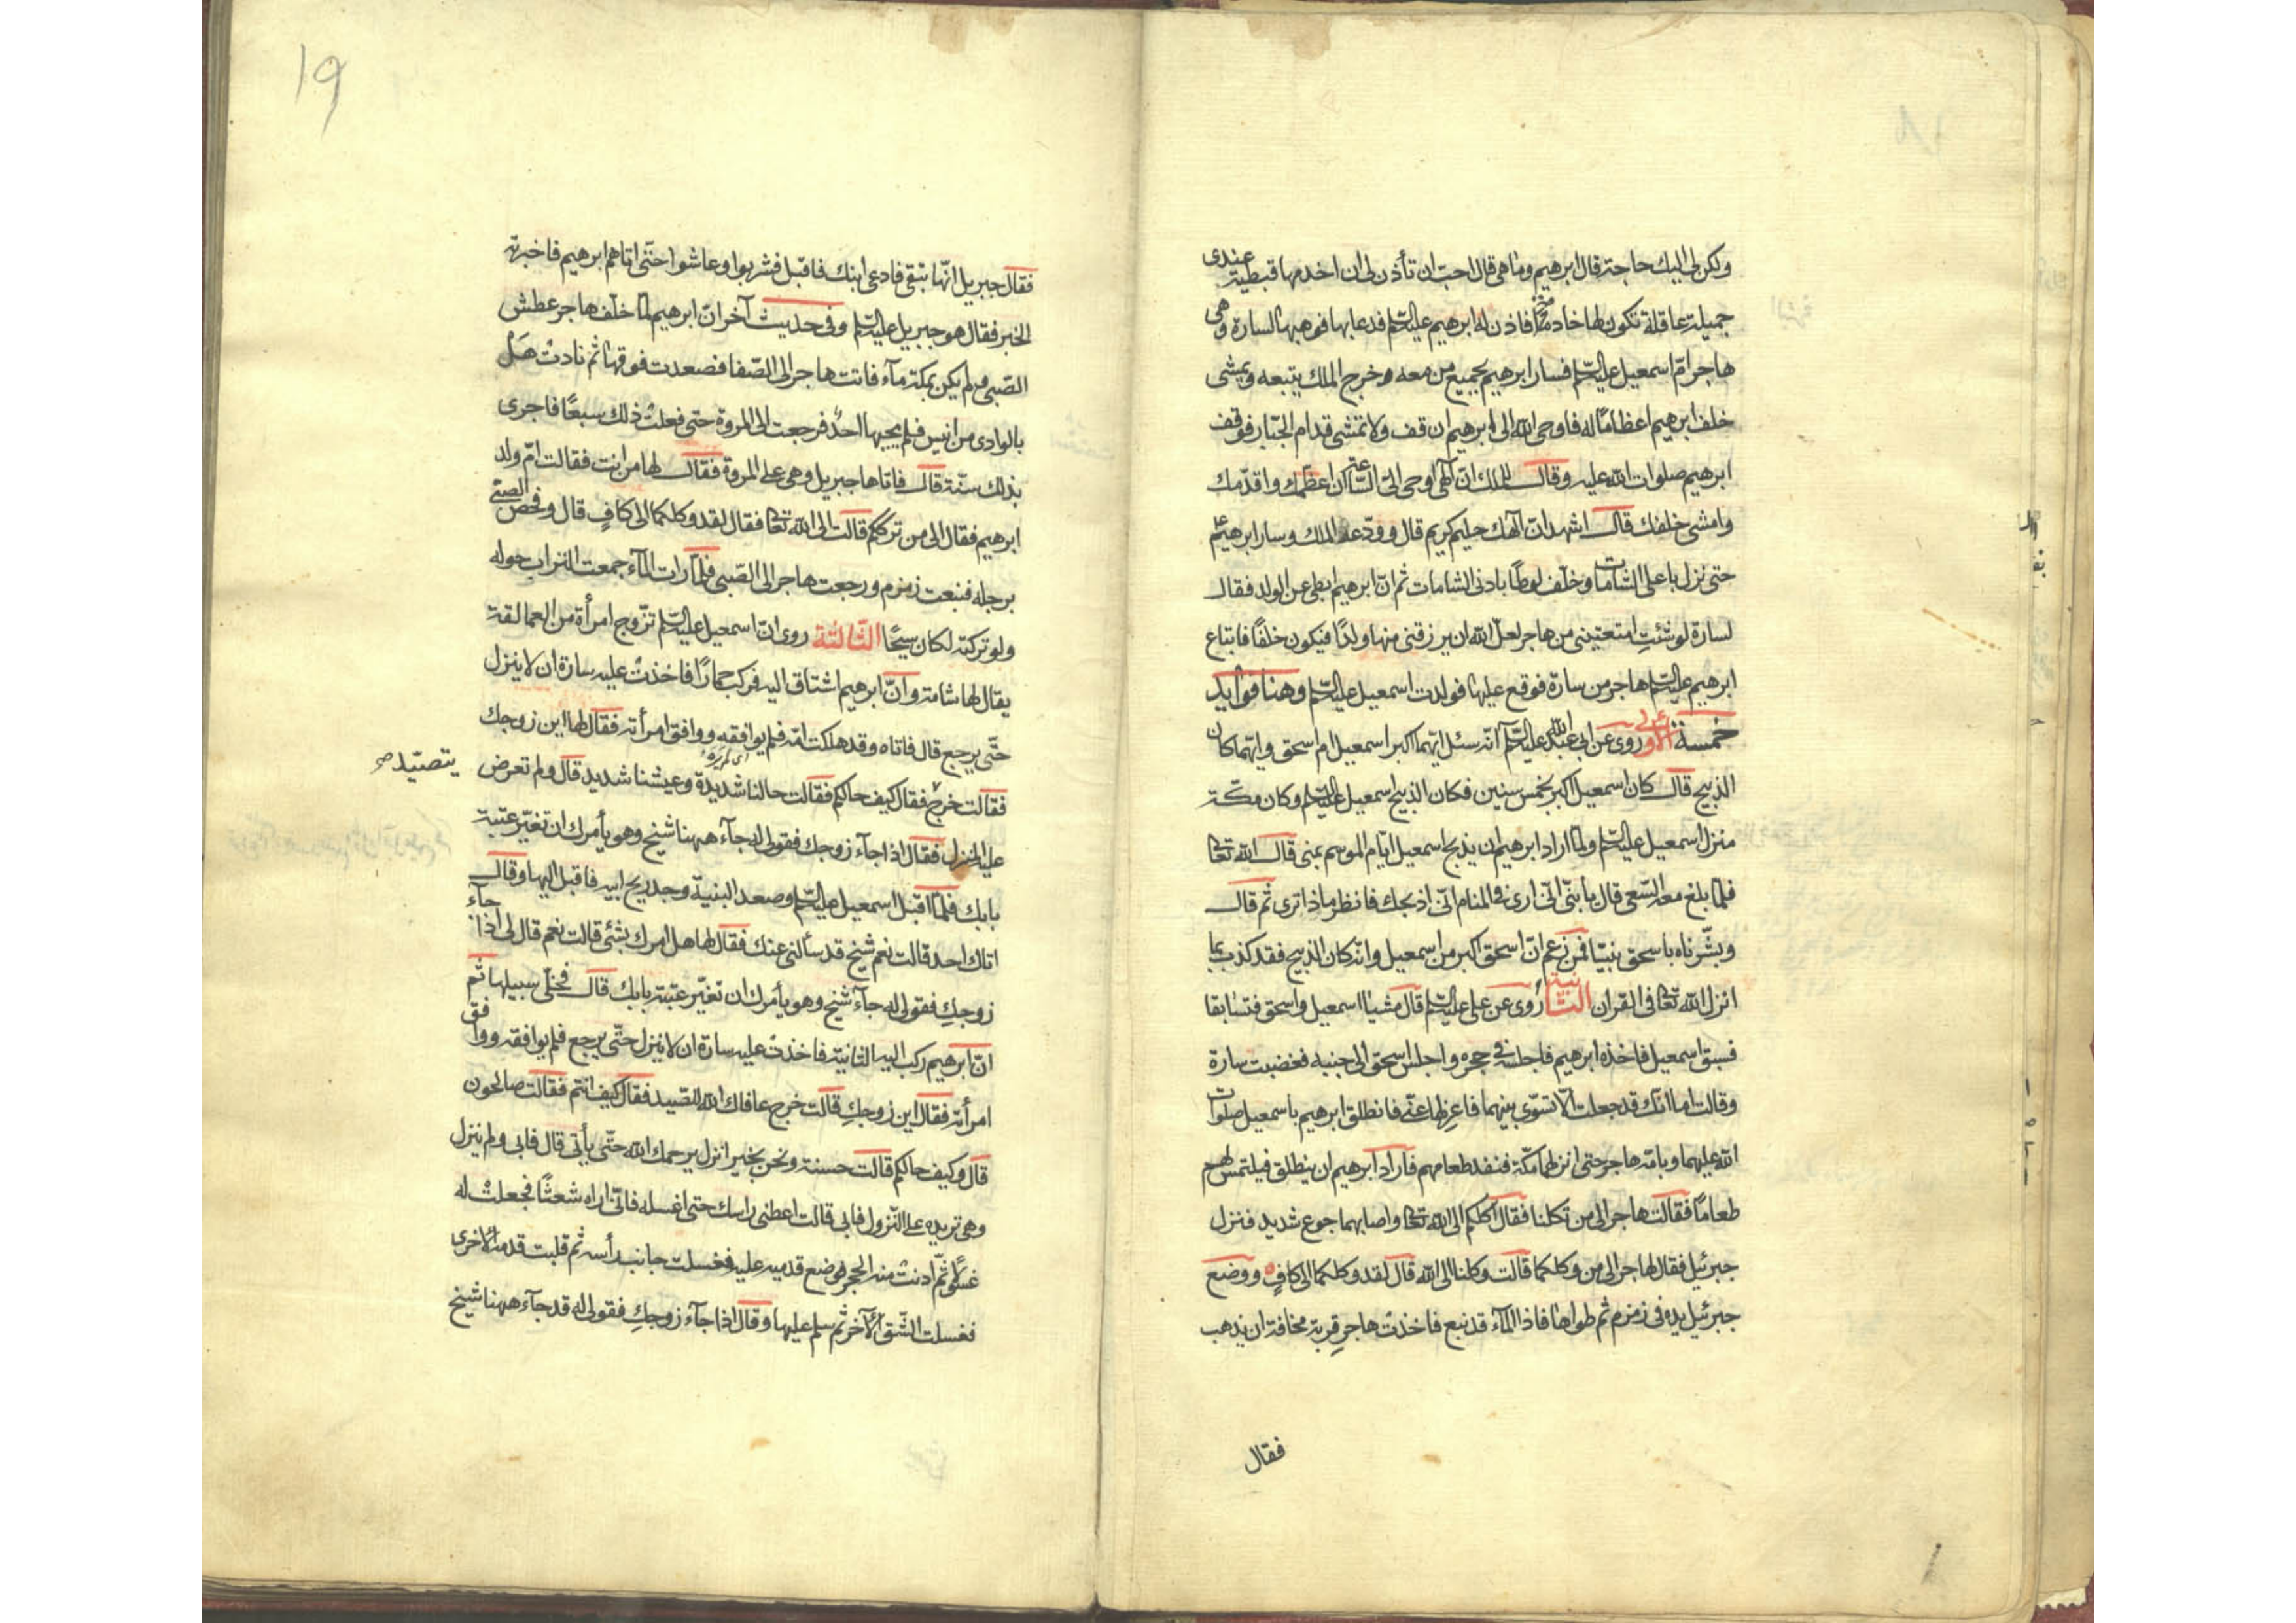 ولكن لى اليك حاجة قال ابرهيم وما هى قال احب ان تأذن لى ان اخدمها قبطية عندى
جميلة عاقلة تكون لها خادمة فاذن له ابرهيم عليه السلام فدعا بها فوهبها لسارة وهى
هاجر امّ اسمعيل عليه السلام فسار ابرهيم بجميع من معه وخرج الملك يتبعه ويمشى
خلف ابرهيم اعظامًا له فاوحى الله الى ابرهيم ان قف ولا تمشى قدام الجبّار فوقف
ابرهيم صلوات الله عليه وقال للملك انّ الهى اوحى الىّ السّاعة ان اعظّمك واقدّمك
وامشى خلفك قال اشهد انّ الهك حليم كريم قال وودّعه الملك وسار ابرهيم
حتى نزل باعلى الشامات وخلّف لوطًا بادنى الشامات ثم انّ ابرهيم ابطى عن الولد فقال
لسارة لو شئتِ امتعتينى من هاجر لعلّ الله ان يرزقنى منها ولدًا فيكون خلفًا فابتاع
ابرهيم عليه السلام هاجر من سارة فوقع عليها فولدت اسمعيل عليه السلام وهنا فوايد
خمسة الأولى روى عن ابى عبد الله عليه السلام انّه سئل ايّهما اكبر اسمعيل ام اسحق وايّهما كان
الذبيح قال كان اسمعيل اكبر بخمس سنين فكان الذبيح اسمعيل عليه السلام وكان مكّة
منزل اسمعيل عليه السلام ولمّا اراد ابرهيم ان يذبح اسمعيل ايّام الموسم بمنى قال الله تعالى
فلمّا بلغ معه السّعى قال يا بنىّ انّى ارى فى المنام انّى اذبحك فانظر ماذا ترى ثم قال
وبشّرناه باسحق نبيّا فمن زعم انّ اسحق اكبر من اسمعيل وانّه كان الذبيح فقد كذب بما
انزل الله تعالى فى القران الثّانية رُوى عن على عليه السلام قال مشيا اسمعيل واسحق فتسابقا
فسبق اسمعيل فاخذه ابرهيم فاجلسه فى حجره واجلس اسحق الى جنبه فغضبت سارة
وقالت اما انّك قد جعلت الّا تسوّى بينهما فاعزلها عنّى فانطلق ابرهيم باسمعيل صلوات
الله عليهما وبامّه هاجر حتى انزلهما مكّة فنفد طعامهم فاراد ابرهيم ان ينطلق فيلتمس لهم
طعامًا فقالت هاجر الى من تكلنا فقال اكلكم الى الله تعالى واصابهما جوع شديد فنزل
جبرئيل فقال لهاجر الى من وكلكما قالت وكلنا الى الله قال لقد وكلكما الى كافٍ ووضع
جبرئيل يده فى زمزم ثم طواها فاذا الماء قد نبع فاخذت هاجر قربة مخافة ان يذهب
فقال
19
فقال جبريل انّها تبقى فادعى ابنك فاقبل فشربوا وعاشوا حتّى اتاهم ابرهيم فاخبرته
الخبر فقال هو جبريل عليه السلام وفى حديث آخر انّ ابرهيم لمّا خلّف هاجر عطش
الصّبى ولم يكن بمكة مآء فاتت هاجر الى الصّفا فصعدت فوقها ثم نادت هَلْ
بالوادى من انيس فلم يجبها احدٌ فرجعت الى المروة حتى فعلت ذلك سبعًا فاجرى
بذلك سنّة قال فاتاها جبريل وهى على المروة فقال لها من انت فقالت امّ ولد
ابرهيم فقال الى من ترككم قالت الى الله تعالى فقال لقد وكلكما الى كافٍ قال وفحص الصبى
برجله فنبعت زمزم ورجعت هاجر الى الصّبى فلمّا رات المآء جمعت التراب حوله
ولو تركته لكان سيحًا الثّالثة روى انّ اسمعيل عليه السلام تزّوج امرأة من العمالقة
يقال لها شامة وانّ ابرهيم اشتاق اليه فركب حمارًا فاخذتْ عليه سارة ان لا ينزل
حتّى يرجع قال فاتاه وقد هلكت امّه فلم يوافقه ووافق امرأته فقال لها اين زوجك
فقالت خرج فقال كيف حالكم فقالت حالنا شديدة وعيشنا شديد قال ولم تعرض
يتصيّد صح
عليه المنزل فقال اذا جآء زوجك فقولى له جآء ههنا شيخ وهو يأمرك ان تغيّر عتبة
بابك فلمّا اقبل اسمعيل عليه السلام وصعد الثنيّة وجد ريح ابيه فاقبل اليها وقال
اتاك احد قالت نعم شيخ قد سألنى عنك فقال لها هل امرك بشئ قالت نعم قال لى اذا جآء
زوجكِ فقولى له جآء شيخ وهو يأمرك ان تغيّر عتبة بابك قال فخلّى سبيلها ثم
انّ ابرهيم ركب اليه الثانية فاخذتْ عليه سارة ان لا ينزل حتّى يرجع فلم يوافقه ووافق
امرأته فقال اين زوجكِ قالت خرج عافاك الله للصّيد فقال كيف انتم فقالت صالحون
قال وكيف حالكم قالت حسنة ونحن بخير انزل يرحمك الله حتّى يأتى قال فابى ولم ينزل
وهى تريده على النّزول فابى قالت اعطنى راسك حتى اغسله فانّى اراه شعثًا فجعلتْ له
غسلًا ثمّ ادنتْ منه الحجر فوضع قدميه عليه فغسلت جانب رأسه ثم قلبت قدمه الاخرى
فغسلت الشّق الآخر ثم سلم عليها وقال اذا جآء زوجكِ فقولى له قد جآء ههنا شيخ